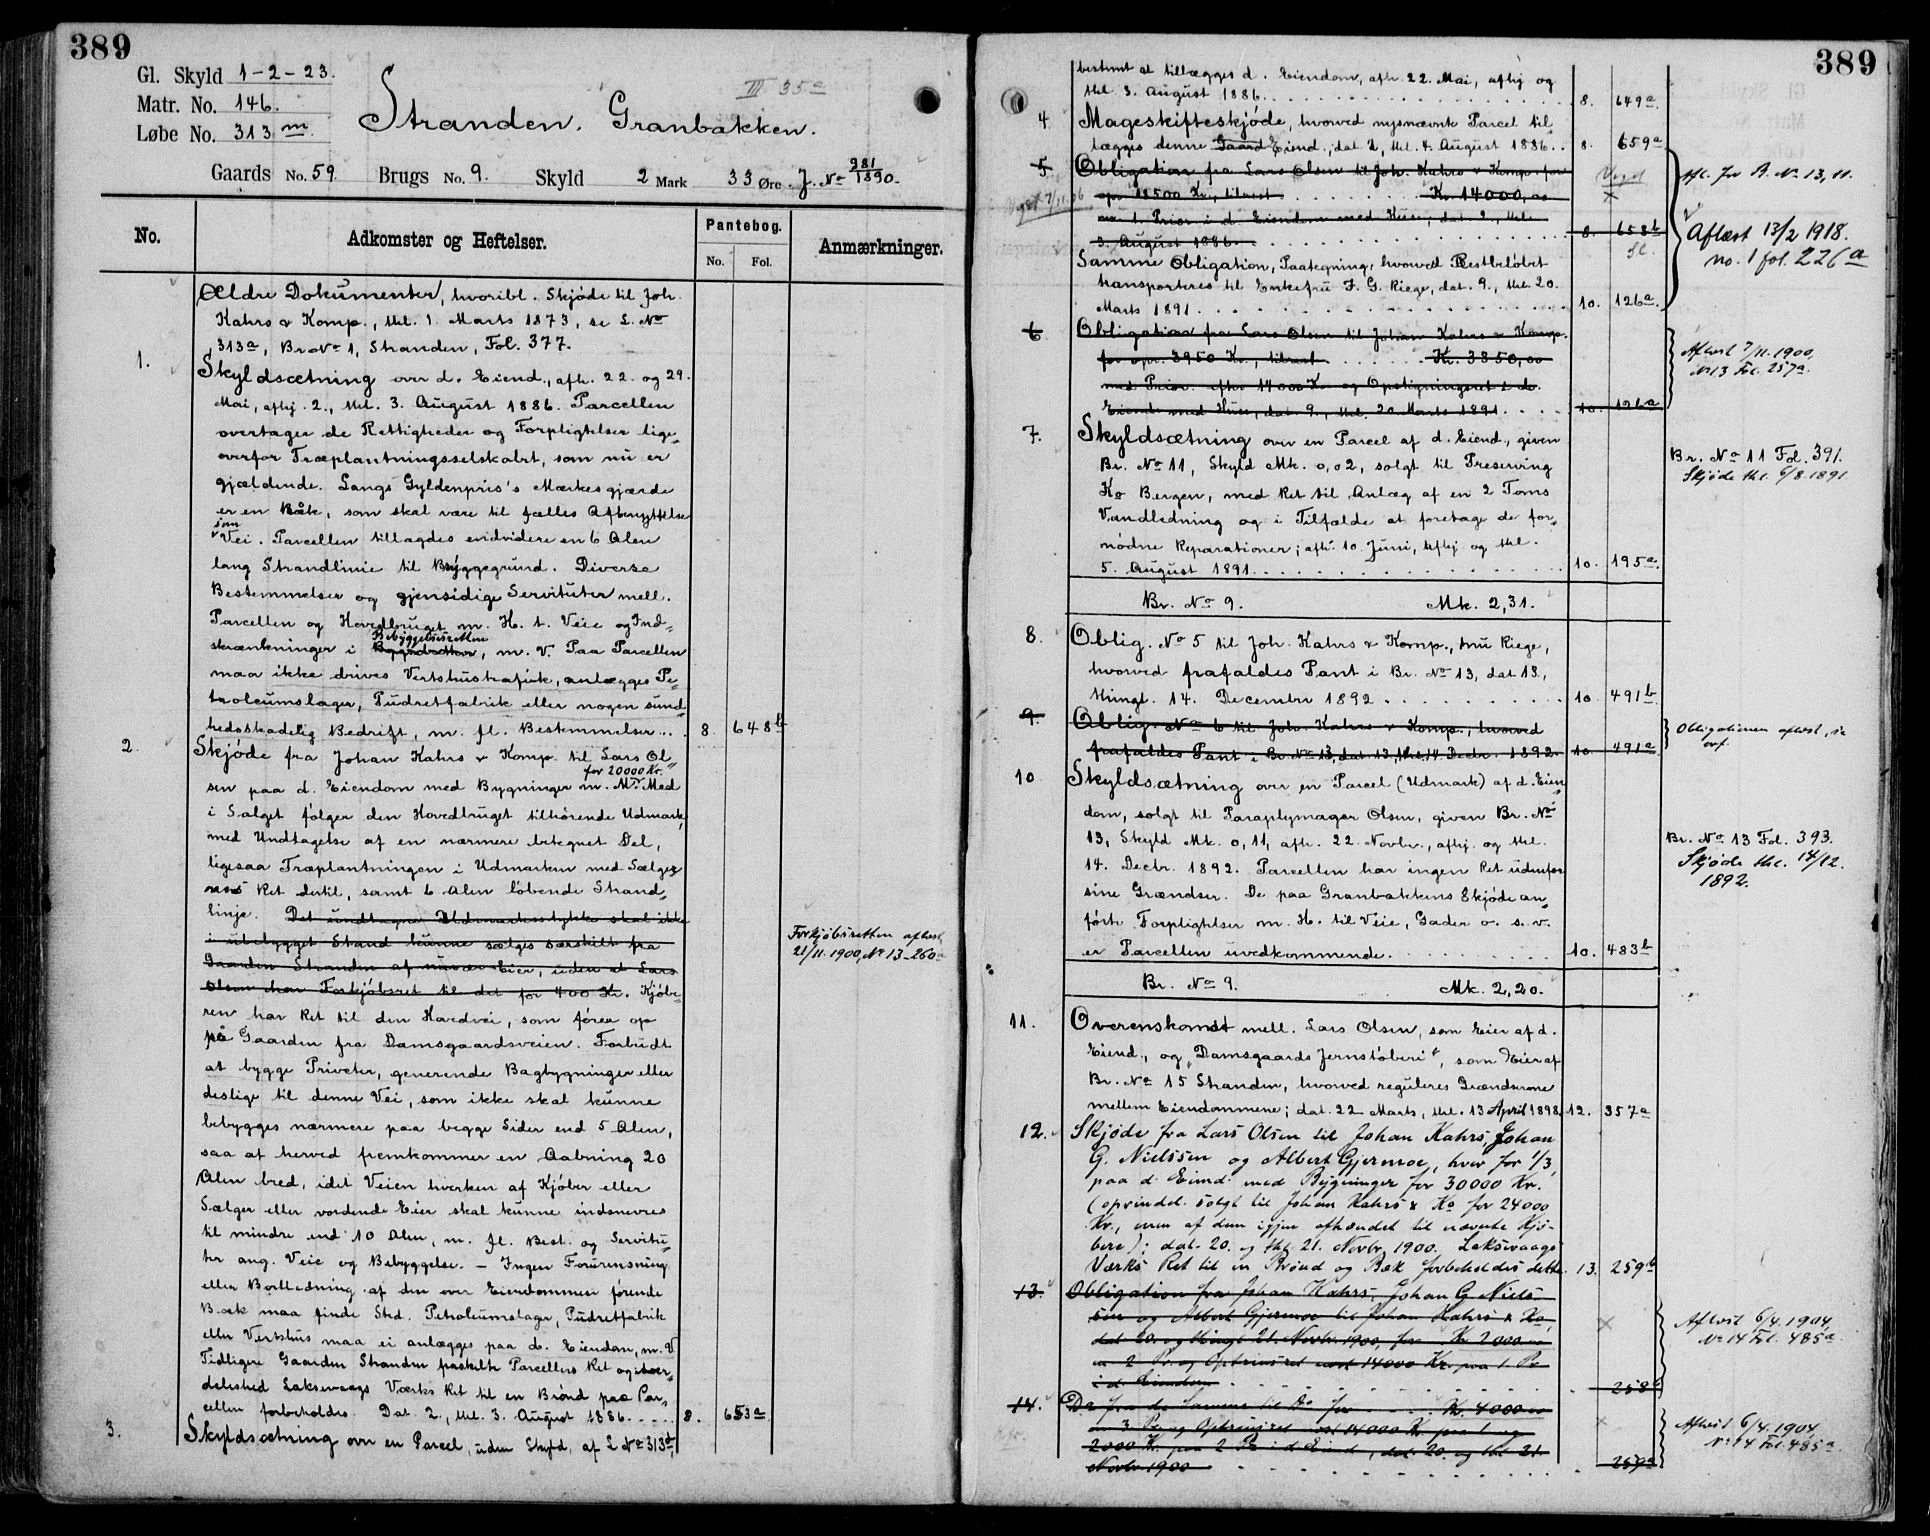 389
Gl. Skyld 1-2-23.
Matr. No. 146.
Løbe No. 313 m.
III 35a
Stranden. Granbakken.
Gaards No. 59. Brugs No. 9. Skyld 2 Mark 33 Øre. J. No 981/1890.
No. Adkomster og Heftelser. Pantebog. No. Fol. Anmærkninger.
Ældre Dokumenter, hvoribl. Skjøde til Joh.
Kahrs & Komp., thl. 1. Marts 1873, se L. No
313a, Br No 1, Stranden, Fol. 377.
1. Skyldsætning over d. Eiend., afh. 22. og 29.
Mai, afhj. 2., thl. 3. August 1886. Parcellen
overtager de Rettigheder og Forpligtelser lige„
overfor Træplantningsselskabet, som nu er
gjældende. Langs Gyldenpris's Mærkesgjærde
er en Bæk, som skal være til fælles Afbenyttelse
som
Vei. Parcellen tillagdes endvidere en 6 Alen
lang Strandlinie til Bryggegrund. Diverse
Bestemmelser og gjensidige Servituter mell.
Parcellen og Hovedbruget m. H. t. Veie og Ind„
Bebyggelsesretten
skrænkninger i Byggeretten, m. V. Paa Parcellen
maa ikke drives Vertshustrafik, anlægges Pe„
troleumslager, Pudretfabrik eller nogen sund„
hedsskadelig Bedrift, m. fl. Bestemmelser... 8. 648b
2. Skjøde fra Johan Kahrs & Komp. til Lars Ol„
for 20000 Kr.
sen paa d. Eiendom med Bygninger m. M. Med
i Salget følger den Hovedbruget tilhørende Udmark,
med Undtagelse af en nærmere betegnet Del,
ligesaa Træplantningen i Udmarken med Sælge„
rens Ret dertil, samt 6 Alen løbende Strand„
linje. Det undtagne Udmarksstykke skal ikke
i ubebygget Stand kunne sælges særskilt fra
Gaarden Stranden af nuvær. Eier, uden at Lars
Olsen har Forkjøbsret til det for 400 Kr. Kjøbe„
Forkjøbsretten aflæst
21/11. 1900, No 13-260a
ren har Ret til den Hardvei, som fører op
på Gaarden fra Damsgaardsveien. Forbudt
at bygge Priveter, generende Bagbygninger eller
deslige til denne Vei, som ikke skal kunne
bebygges nærmere paa begge Sider end 5 Alen,
saa at herved fremkommer en Aabning 20
Alen bred, idet Veien hverken af Kjøber eller
Sælger eller vordende Eier skal kunne indsnevres
til mindre end 10 Alen, m. fl. Best. og Servitu„
ter ang. Veie og Bebyggelse. — Ingen Forurensning
eller Bortledning af den over Eiendommen førende
Bæk maa finde Sted. Petroleumslager, Pudretfabrik
eller Vertshus maa ei anlægges paa d. Eiendom, m. V.
Tidligere Gaarden Stranden fraskilte Parcellers Ret og især„
deleshed Laksevaags Værks Ret til en Brønd paa Par„
cellen forbeholdes. Dat. 2., thl. 3. August 1886. .... 8. 653a
3. Skyldsætning over en Parcel, uden Skyld, af L No 313d,
389
bestemt at tillægges d. Eiendom, afh. 22. Mai, afhj og
thl. 3. August 1886. . . . 8. 649a
4. Mageskifteskjøde, hvorved nysnævnte Parcel til„
lægges denne Gaard Eiend.; dat. 2, thl. 4. August 1886.. 8. 659a
5. Obligation fra Lars Olsen til Joh. Kahrs & Komp. for
opr. 18500 Kr., tilrest . . . Kr. 14000,00
m. 1. Prior. i d. Eiendom med Huse; dat. 2., thl.
3. August 1886. . . . 8. 658b
Afl. for B. No 13, 11.
Aflæst 13/2 1918.
no. 1 fol. 226a
Samme Obligation, Paategning, hvorved Restbeløbet
transporteres til Enkefru F. G. Riege, dat. 9., thl. 20.
Marts 1891 . . . 10. 126a.
6. Obligation fra Lars Olsen til Johan Kahrs & Komp.
for opr. 3950 Kr., tilrest . . . Kr. 3350,00
med Prior. efter 14000 Kr. og Opstigningsret i d.
Eiend. med Huse, dat. 9., thl. 20 Marts 1891. . . . 10. 126a
Aflæst 7/11. 1900,
No 13 Fol. 257a.
7. Skyldsætning over en Parcel af d. Eiend., given
Br. No 11, Skyld Mk. 0,02, solgt til Preserving
Ko Bergen, med Ret til Anlæg af en 2 Toms
Vandledning og i Tilfælde at foretage de for„
nødne Reparationer; afh. 10. Juni, afhj og thl.
5. August 1891. . . . 10. 195a.
Br. No 11 Fol. 391.
Skjøde thl. 6/8. 1891.
Br. No 9. Mk. 2,31.
8. Oblig. No 5 til Joh. Kahrs & Komp., nu Riege,
hvorved frafaldes Pant i Br. No 13, dat 13.,
thingl. 14. December 1892 . . . 10. 491b
9. Oblig. No 6 til Joh. Kahrs & Komp., hvorved
frafaldes Pant i Br. No 13, dat 13, thl. 14 Decbr. 1892. 10. 491a
Obligationen aflæst, se
ovf.
10 Skyldsætning over en Parcel (Udmark) af d. Eien„
dom, solgt til Paraplymager Olsen, given Br. No
13, Skyld Mk. 0,11, afh. 22. Novbr., afhj. og thl.
14. Decbr. 1892. Parcellen har ingen Ret udenfor
sine Grændser. De paa Granbakkens Skjøde an„
førte Forpligtelser m. H. til Veie, Gader o. s. v.
er Parcellen uvedkommende. . . . 10. 483b
Br. No 13 Fol. 393.
Skjøde thl. 14/12.
1892.
Br. No 9. Mk. 2,20.
11. Overenskomst mell. Lars Olsen, som Eier af d.
Eiend., og „Damsgaards Jernstøberi“, som Eier af
Br. No 15 Stranden, hvorved reguleres Grændserne
mellem Eiendommene; dat. 22 Marts, thl. 13 April 1898. 12. 357a
12. Skjøde fra Lars Olsen til Johan Kahrs, Johan
G. Nielssen og Albert Gjermoe, hver for 1/3,
paa d. Eiend. med Bygninger for 30000 Kr.
(oprindel. solgt til Johan Kahrs & Ko for 24000
Kr., men af dem igjen afhændet til nævnte Kjø-
bere); dat. 20. og thl. 21. Novbr. 1900. Laksevaags
Værks Ret til en Brønd og Bæk forbeholdes dette. 13. 259b
13. Obligation fra Johan Kahrs, Johan G Niels
sen og Albert Gjermoe til Johan Kahrs & Ko,
dat 20. og thingl 21. Novbr. 1900, for Kr. 2000 00
m 2 Pr. og Optrinsret mod 14000 Kr. paa 1 Pr.
i d. Eiendom . . . 258b
Aflæst 6/4. 1904,
No 14 Fol. 485a
14. Do fra de Samme til Do for Kr. 4000 00
m 3 Pr. og Optrinsret mod 14000 Kr. paa 1 og
2000 Kr. paa 2 Pr. i d Eiend, dat. 20. og thl 21.
Novbr 1900 . . . 257a
Aflæst 6/4. 1904,
No 14 Fol. 485a.